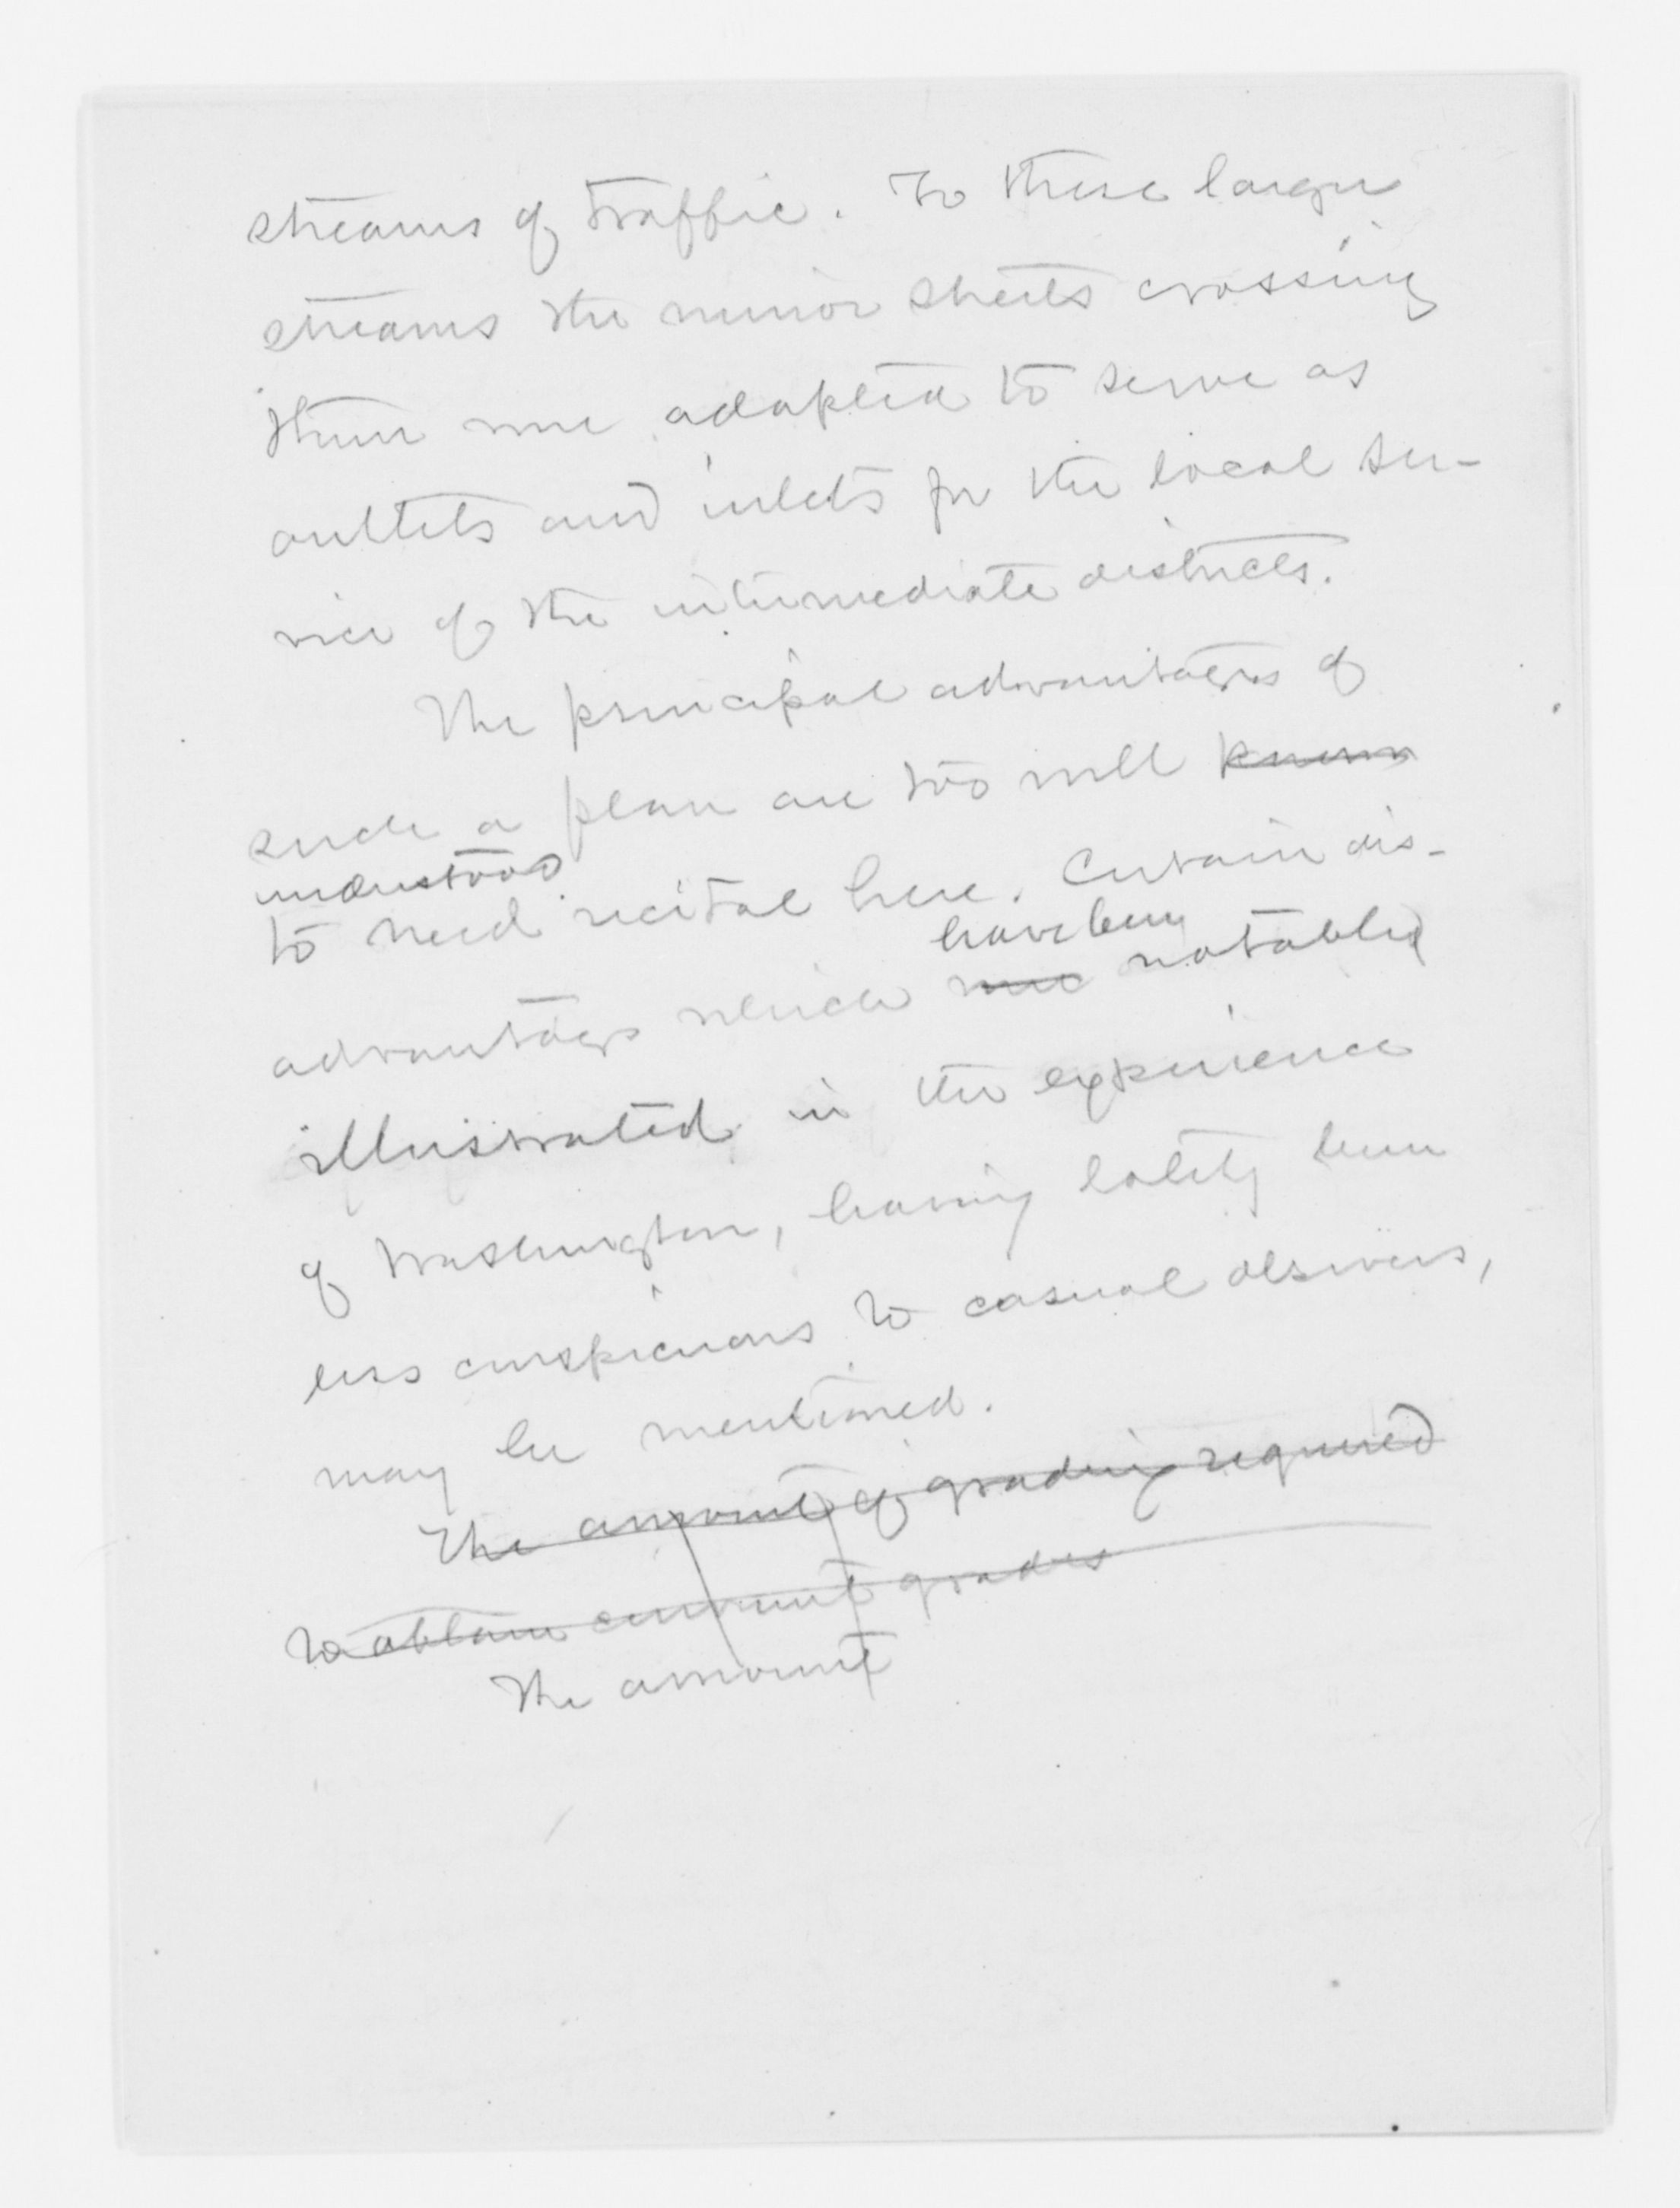 streams of traffic. To these larger
streams the minor streets crossing
them were adapted to serve as
outlets and inlets for the local ser-
vice of the intermediate districts.
The principal advantages of
such a plan are too well known
understood
to need recital here. Certain dis-
have been
advantages which were notably
illustrated in the experience
of Washington, having lately been
less conspicuous to casual observers,
may be mentioned.
The amount of grading required
to obtain convenient grades
The amount